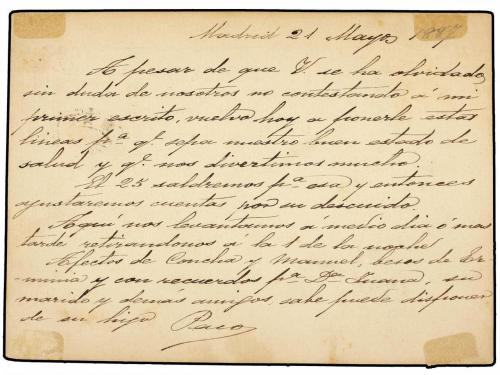 Madrid 21 Mayo 1887
A pesar de que V. se ha olvidado
sin duda de nosotros no contestando á mi
primer escrito, vuelvo hoy a ponerle estas
lineas pª qe. sepa nuestro buen estado de
salud y qe. nos divertimos mucho.
El 25 saldremos pª esa y entonces
ajustaremos cuentas por su descuido.
Aquí nos levantamos á medio dia ó mas
tarde retirandonos a la 1 de la noche
Afectos de Concha y Manuel, besos de Er-
minia y con recuerdos pª Dª Juana, su
marido y demas amigos, sabe puede disponer
de su hijo Paco